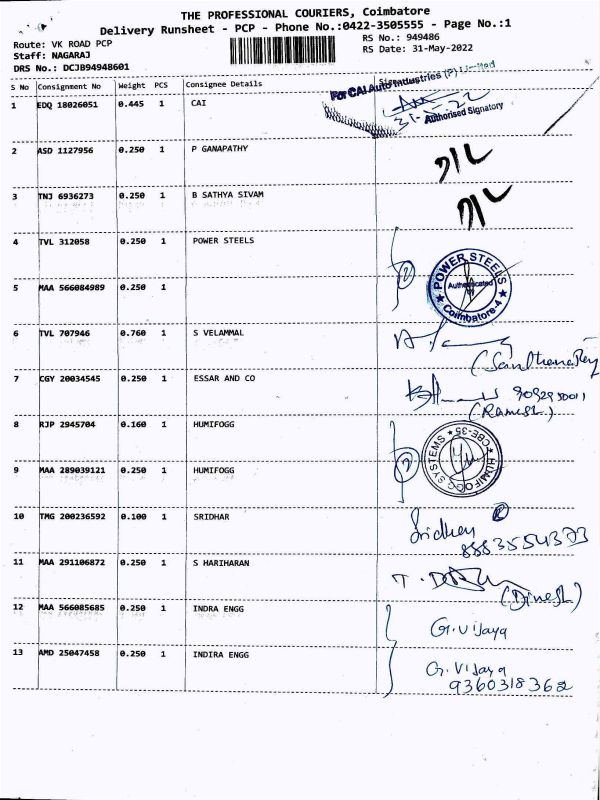 THE PROFESSIONAL COURIERS, Coimbatore
Delivery Runsheet - PCP - Phone No.:0422-3505555 - Page No.:1
Route: VK ROAD PCP
Staff: NAGARAJ
DRS No.: DCJB94948601
RS No.: 949486
RS Date: 31-May-2022
S No Consignment No Weight PCS Consignee Details
For CAI Auto Industries (P) Limited
1 EDQ 18026051 0.445 1 CAI
Authorised Signatory
2 ASD 1127956 0.250 1 P GANAPATHY
3 TNJ 6936273 0.250 1 B SATHYA SIVAM
4 TVL 312058 0.250 1 POWER STEELS
POWER STEELS
Authenticated
by
Coimbatore-4
5 MAA 566084989 0.250 1
6 TVL 707946 0.760 1 S VELAMMAL
7 CGY 20034545 0.250 1 ESSAR AND CO
(Ramesh)
8 RJP 2945704 0.160 1 HUMIFOGG
HUMIFOGG SYSTEMS *CBE-35*
9 MAA 289039121 0.250 1 HUMIFOGG
10 TMG 200236592 0.100 1 SRIDHAR
Sridhar
8883554373
11 MAA 291106872 0.250 1 S HARIHARAN
(Dinesh)
12 MAA 566085685 0.250 1 INDRA ENGG
G.Vijaya
13 AMD 25047458 0.250 1 INDIRA ENGG
G.Vijaya
9360318362